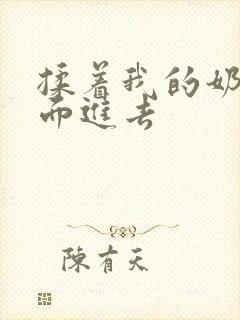 揉着我的奶
而進去
陳有天